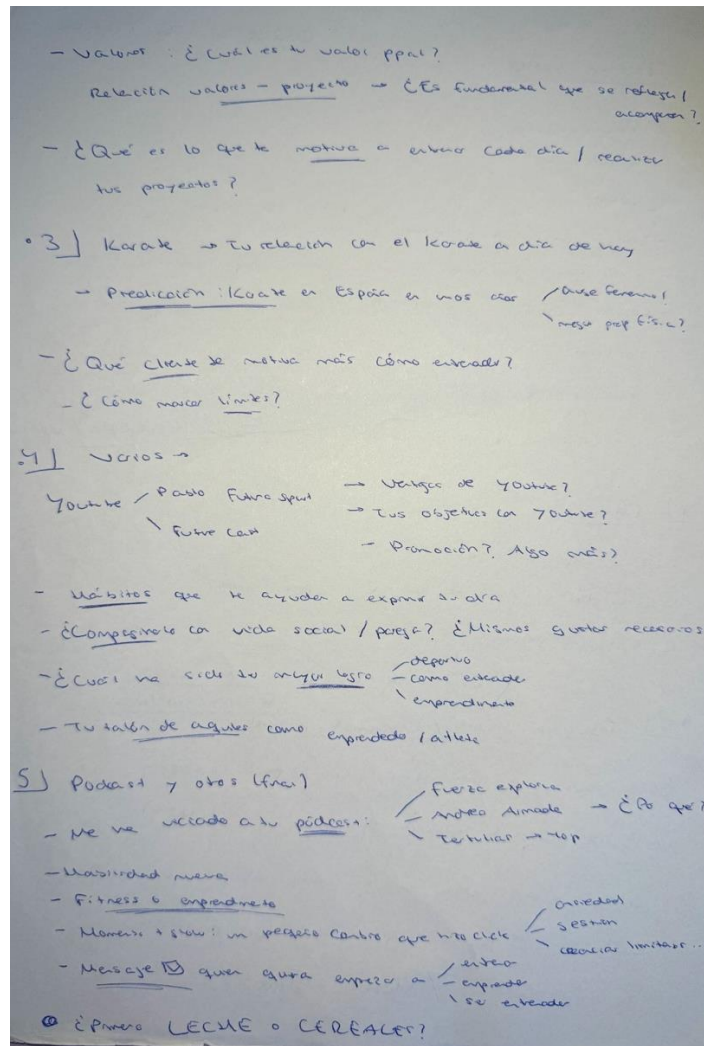 - Valores : ¿Cuál es tu valor ppal?
Relación valores - proyecto → ¿Es fundamental que se
acompañen?
- ¿Qué es lo que te motiva a entrenar cada día / realizar
tus proyectos?
• 3] Karate → Tu relación con el Karate a día de hoy
- Predicción : Karate en España en unos años
mejor prep física?
- ¿Qué cliente te motiva más cómo entrenador?
- ¿Cómo marcar límites?
.4] Varios →
Youtube / Pablo Futura Sport → Ventajas de Youtube?
\ Future → Tus objetivos con Youtube?
- Promoción? Algo más?
- Hábitos que te ayudan a exprimir tu día
- ¿Compaginarlo con vida social / pareja? ¿Mismos gustos necesarios
- ¿Cuál ha sido tu mayor logro / deportivo
- como entrenador
\ emprendimiento
- Tu talón de aquiles como emprendedor / atleta
5] Podcast y otros (final)
- Me he viciado a tu pódcast: / Fuerza explosiva
- → ¿Por qué?
\ Tertulias → top
- Habilidad nueva
- Fitness o emprendimiento
- Momento + : un pequeño cambio que hizo click / ansiedad
- gestión
\ creencias limitant..
- Mensaje ✉ quien quiera empezar a / entreno
- emprender
\ ser entrenador
• ¿Primero LECHE o CEREALES?